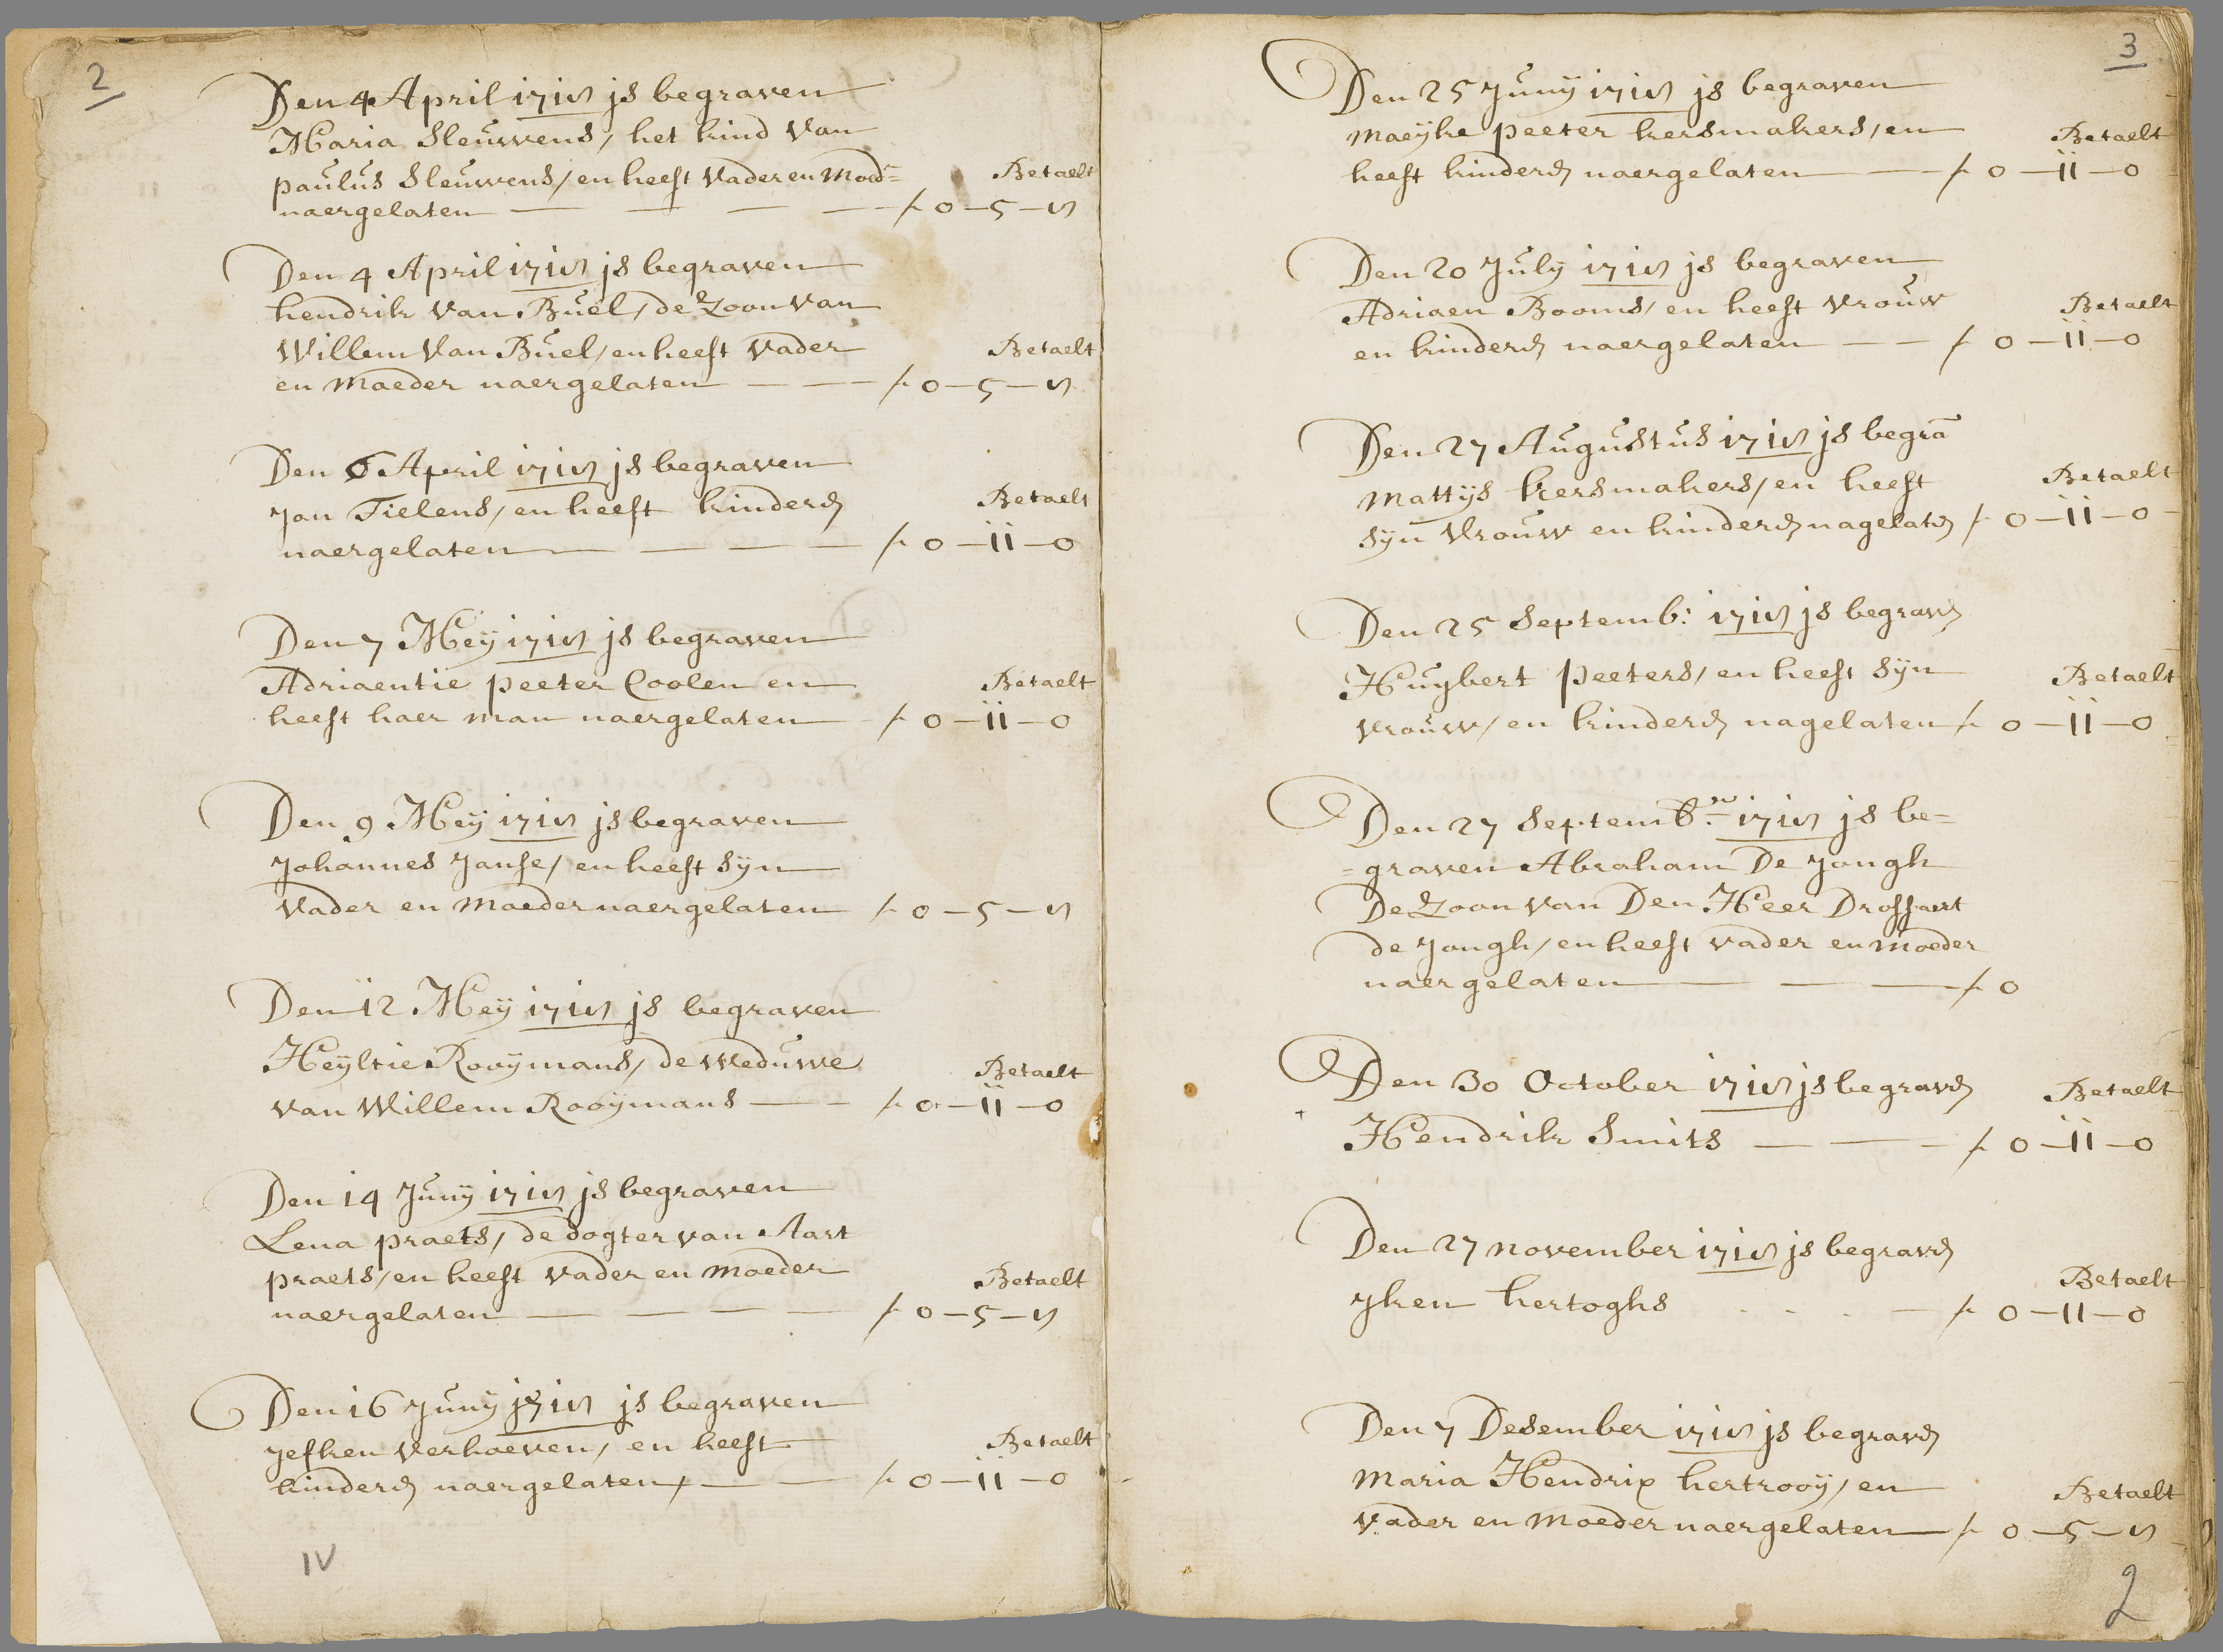 2
Den 4 April 1718 js begraven
Maria Sleuwens, het kind van
paulus Sleuwens, en heeft vader en Moed=
Betaelt
naergelaten — — — — f 0—5—8
Den 4 April 1718 js begraven
hendrik van Buel, de Zoon van
Willem van Buel, en heeft vader
Betaelt
en Moeder naergelaten — — — f 0—5—8
Den 6 April 1718 js begraven
Jan Tielens, en heeft kinderen
Betaelt
naergelaten — — — — f 0—11—0
Den 7 Meij 1718 js begraven
Adriaentie peeter Coolen en
Betaelt
heeft haer man naergelaten — f 0—11—0
Den 9 Meij 1718 js begraven
Johannes Janse, en heeft sijn
vader en Moeder naergelaten f 0—5—8
Den 12 Meij 1718 js begraven
Heijltie Rooijmans, de weduwe
Betaelt
van Willem Rooijmans — — f 0—11—0
Den 14 Junij 1718 js begraven
Lena praets, de dogter van Aart
praets, en heeft vader en Moeder
Betaelt
naergelaten — — — — f 0—5—8
Den 16 Junij j718 js begraven
Jefken verhoeven, en heeft
Betaelt
kinderen naergelaten, — — f 0—11—0
IV
3
Den 25 Junij 1718 js begraven
maeijke peeter kersmakers, en
Betaelt
heeft kinderen naergelaten — f 0—11—0
Den 20 Julij 1718 js begraven
Adriaen Booms, en heeft vrouw
Betaelt
en kinderen naergelaten — — f 0—11—0
Den 27 Augustus 1718 js begra
Mattijs kersmakers, en heeft
Betaelt
sijn vrouw en kinderen nagelaten f 0—11—0
Den 25 Septemb: 1718 js begraven
Huijbert peeters, en heeft sijn
Betaelt
vrouw, en kinderen nagelaten f 0—11—0
Den 27 Septembr 1718 js be=
=graven Abraham De Jongh
De Zoon van Den Heer Drossaert
de Jongh, en heeft vader en Moeder
naergelaten — — — f 0
Den 30 October 1718 js begraven
Betaelt
Hendrik Smits — — — f 0—11—0
Den 27 november 1718 js begraven
Betaelt
Jken hertoghs . . . — f 0—11—0
Den 7 Desember 1718 js begraven
Maria Hendrix hertrooij, en
Betaelt
vader en Moeder naergelaten — f 0—5—8
2